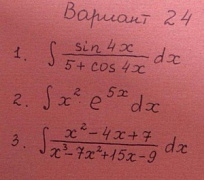 Вариант 24
1. ∫ sin 4x / 5 + cos 4x dx
2. ∫ x² e^5x dx
3. ∫ x² - 4x + 7 / x³ - 7x² + 15x - 9 dx